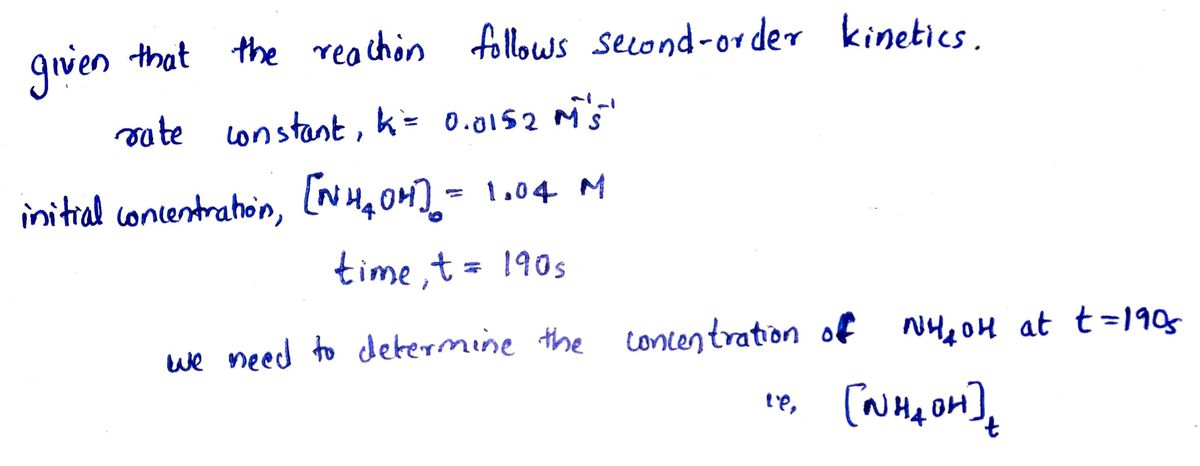 given that the reaction follows second-order kinetics.
rate constant, k = 0.0152 M⁻¹s⁻¹
initial concentration, [NH₄OH]₀ = 1.04 M
time, t = 190s
we need to determine the concentration of NH₄OH at t=190s
ie, [NH₄OH]ₜ